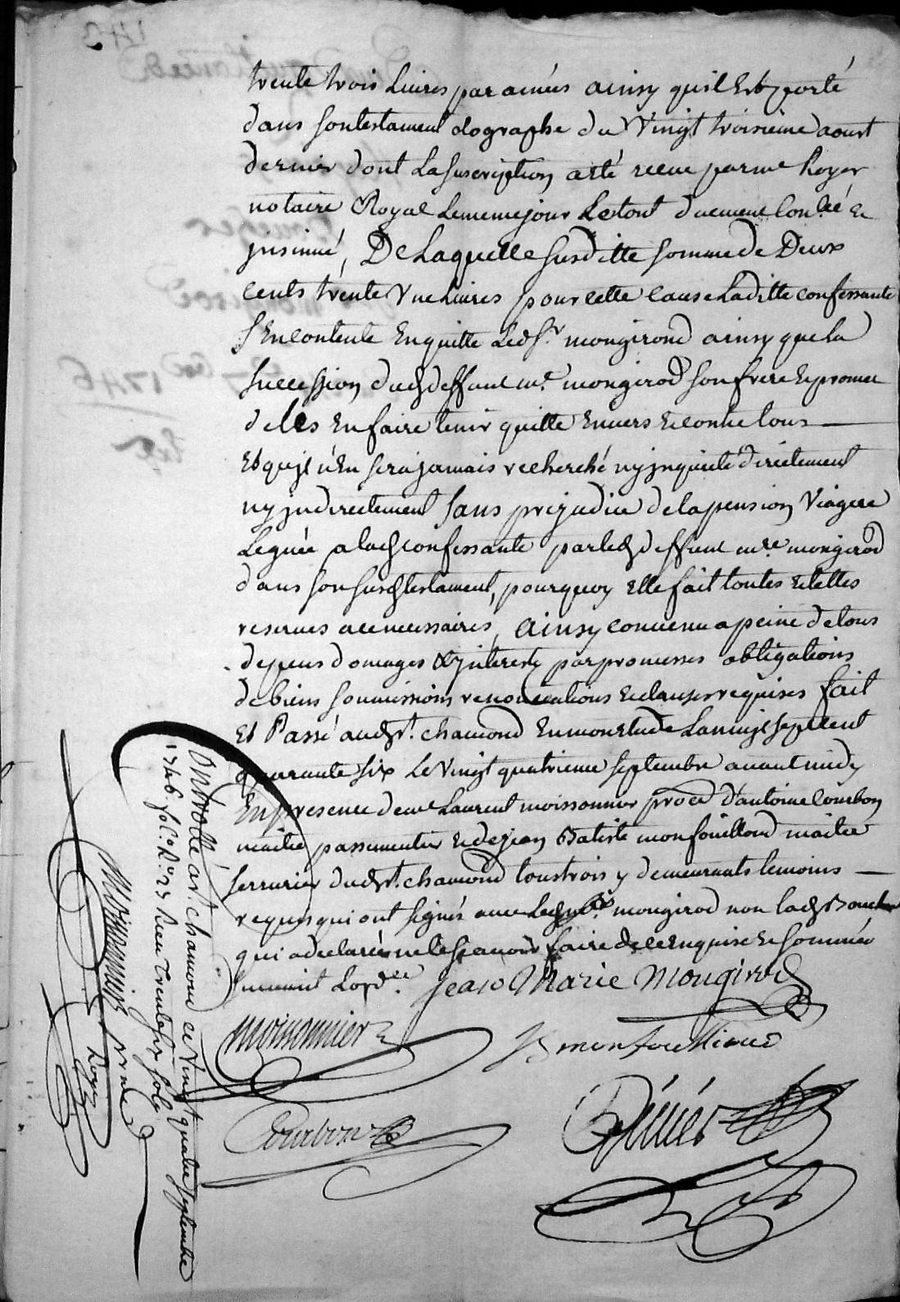 trente trois Livres par années ainsy quil Est porté
dans son testament olographe du Vingt troisieme aoust
dernier dont La suscription a eté receue par me Royer
notaire Royal Le meme jour Le tout duement Con.lé &
jnsinué, De Laquelle susditte somme de Deux
cents trente Une Livres pour cette cause Laditte confessante
s'En contente En quitte Led. Sr. mongirod ainsy que La
succession dud. deffunt me. mongirod son frere Et promet
de Les En faire tenir quitte Envers Et contre tous
Et qu'il n'En sera jamais recherché ny jnquieté directement
ny jndirectement sans prejudice de la pension Viagere
Leguée a lad. confessante par led. deffunt me. mongirod
dans son susd. testament, pourquoy Elle fait toutes Et telles
reserves a ce necessaires, ainsy convenu a peine de tous
depens domages & jnterests par promesses obligations
de biens soumissions renonciations Et clauses requises fait
Et Passé aud. St. chamond En mon etude Lan mil sept cent
quarante six Le vingt quatrieme septembre avant midy
En presence de me Laurent moissonnier d'antoine Courbon
maitre passementier Et de jean Batiste monfouilloud maitre
serrurier dud. St. chamond tous trois y demeurants temoins
requis qui ont signés avec Led. Sr. mongirod non lad.
qui a declaré ne le scavoir faire de ce Enquise Et sommée
suivant Lord.ce. Jean Marie Mongirod
moissonnier
JB monfouilloud
Courbon
Controllé a St. chamond ce Vingt quatre septembre
1746 fol. Ro. 23 Receu trente six sols
Royer
142
1746